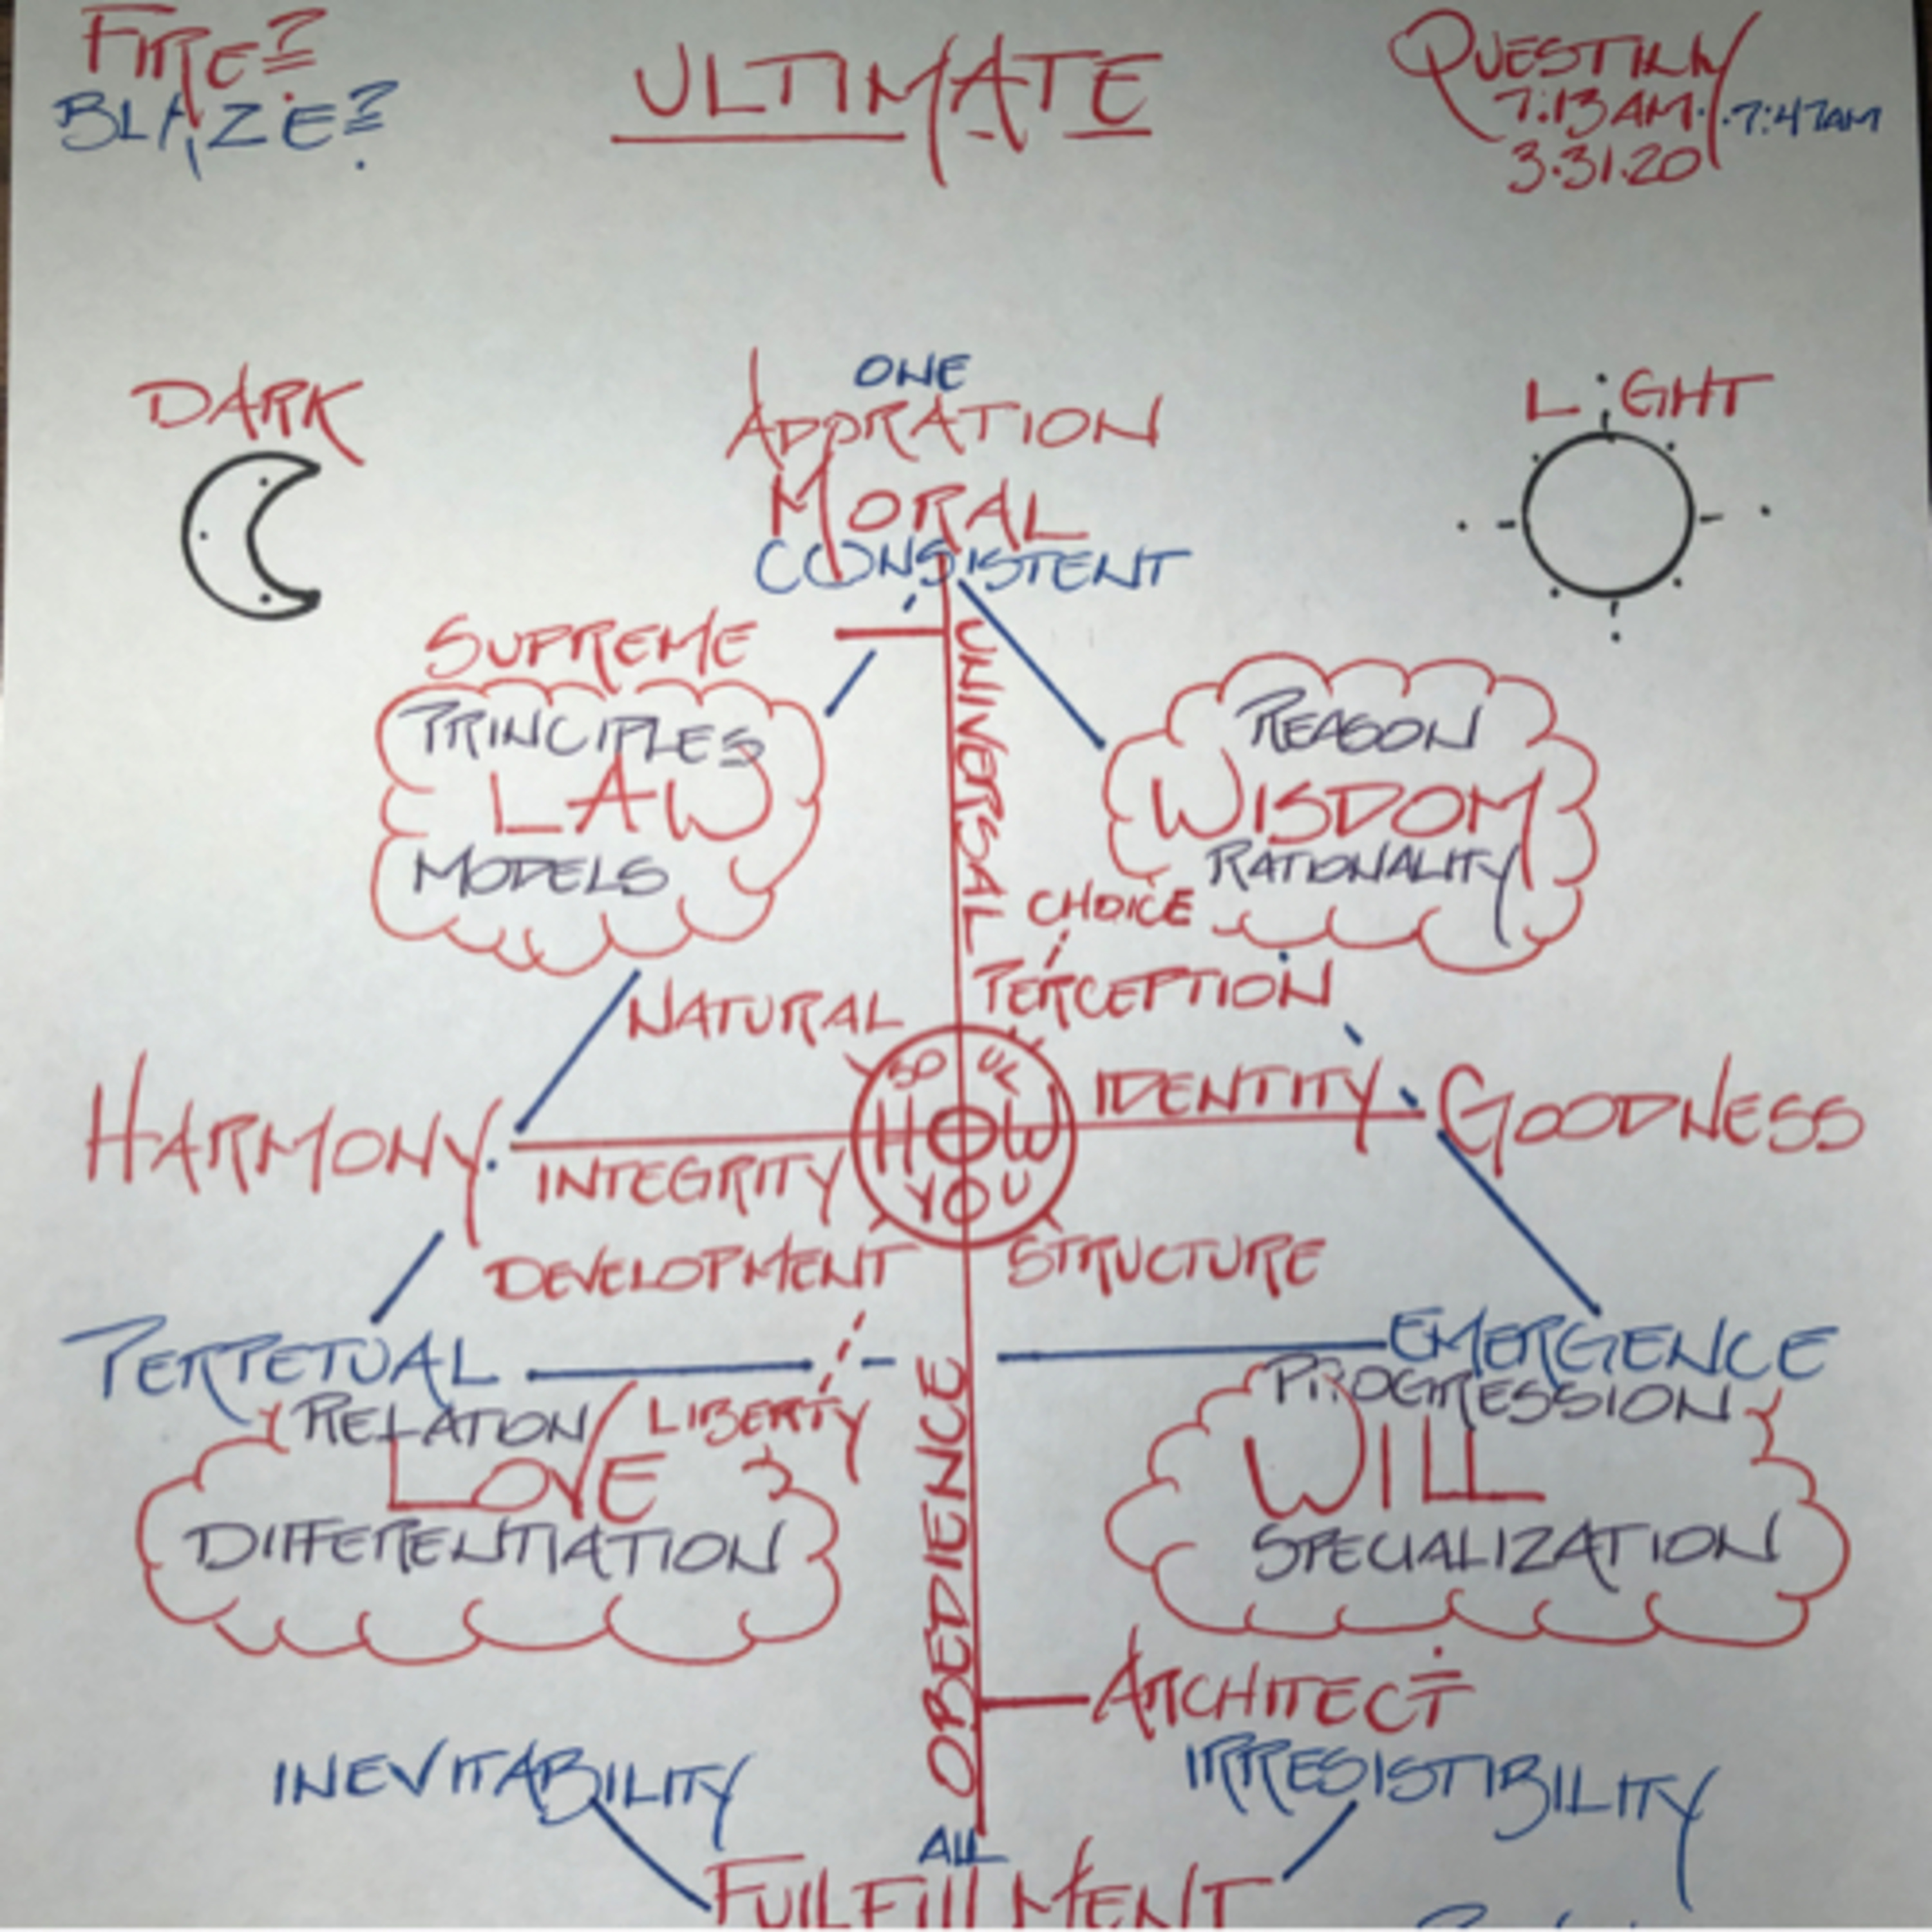 FIRE?
BLAZE?
ULTIMATE
7:13AM. .7:47AM
3.31.20
DARK
LIGHT
ONE
ADORATION
MORAL
CONSISTENT
SUPREME
UNIVERSAL
PRINCIPLES
LAW
MODELS
REASON
WISDOM
RATIONALITY
CHOICE
PERCEPTION
NATURAL
HARMONY
IDENTITY
GOODNESS
INTEGRITY
HOW
YOU
DEVELOPMENT
STRUCTURE
PERPETUAL
EMERGENCE
RELATION
LIBERTY
LOVE
DIFFERENTIATION
PROGRESSION
WILL
SPECIALIZATION
OBEDIENCE
ARCHITECT
INEVITABILITY
IRRESISTIBILITY
ALL
FULFILLMENT